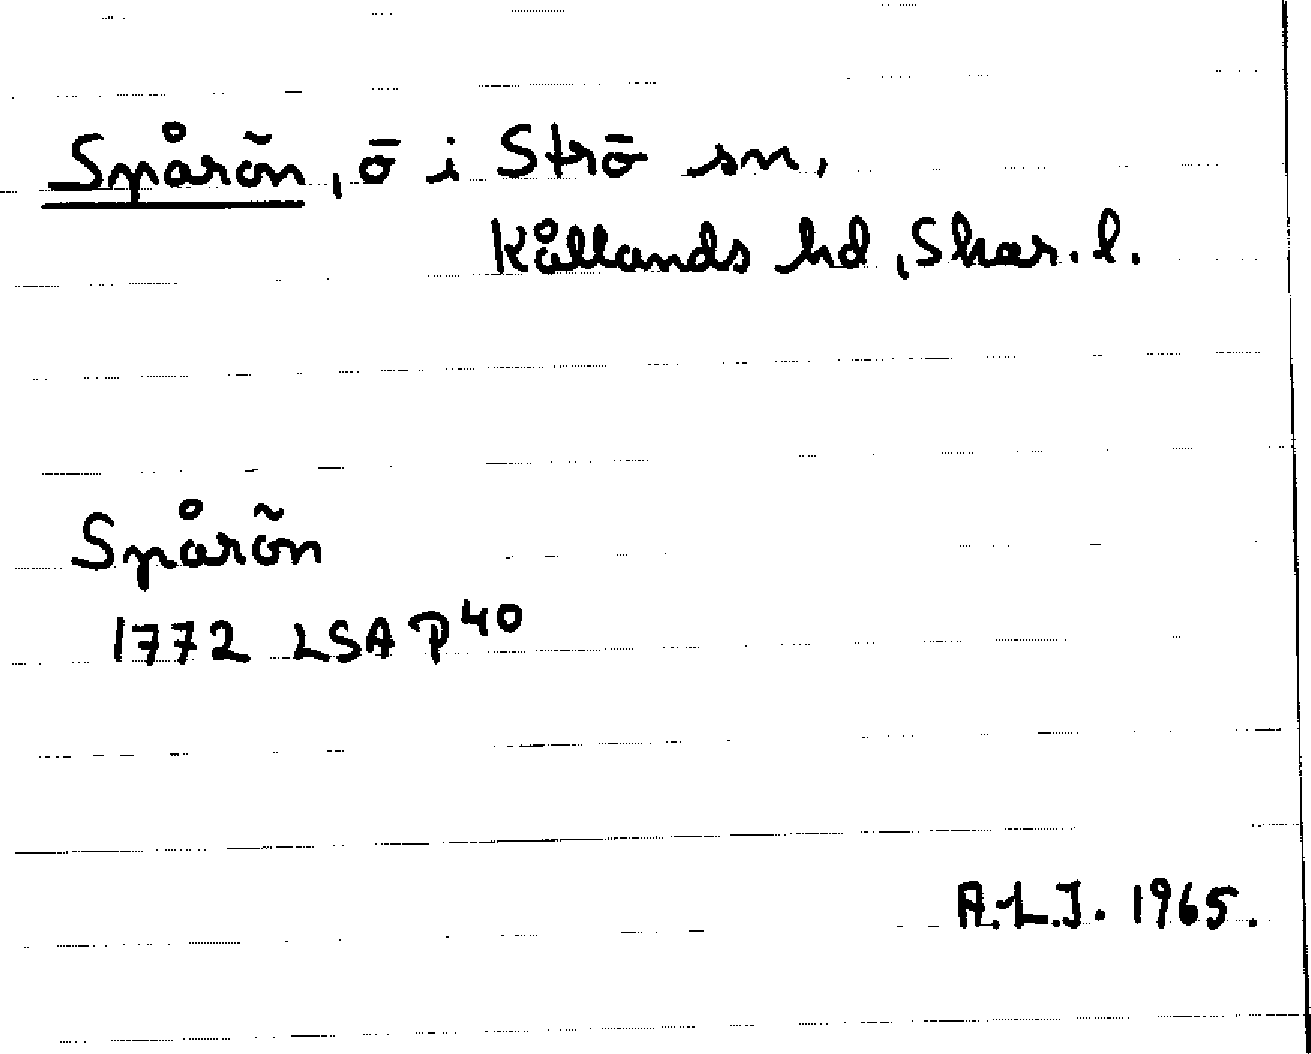 Spårön, ö i Strö sn,
Kållands hd, Skar. l.
Spårön
1772 LSA P40
A.L.J. 1965.